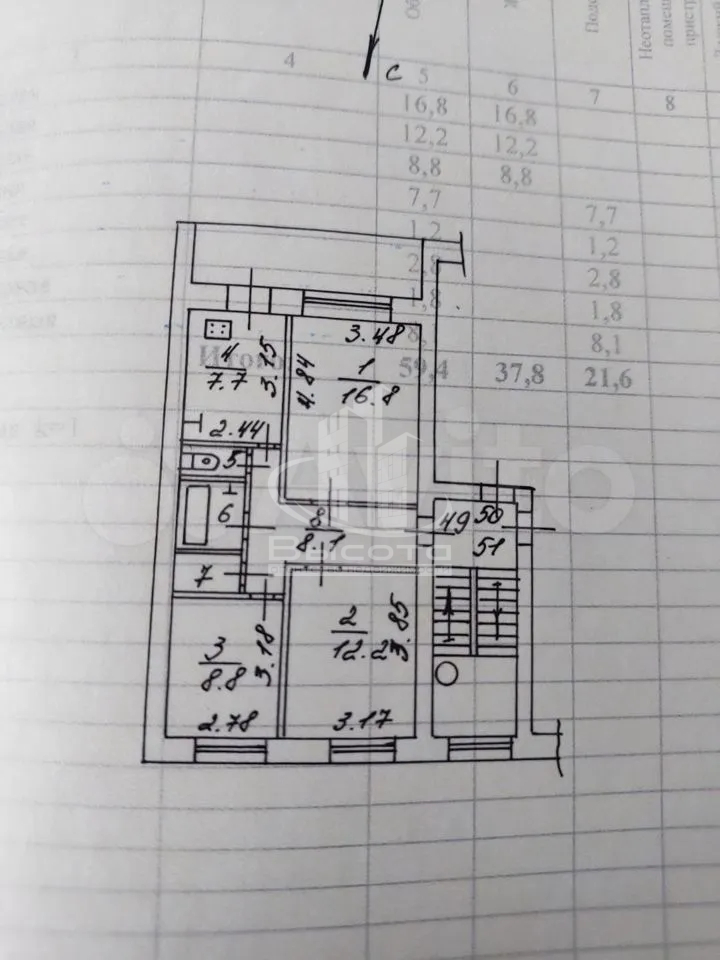 Об
Ж
Подс
Неотапл
помещ
пристр
4
С
5
6
7
8
16,8 16,8
12,2 12,2
8,8 8,8
7,7 7,7
1,2 1,2
2,8 2,8
1,8 1,8
8, 8,1
Итого 59,4 37,8 21,6
3.48
4
7.7
3.15
4.84
1
16.8
2.44
5
Avito
6
8
8.1
49 50
51
Высота
7
3
8.8
3.18
2
12.2
3.85
2.78
3.17